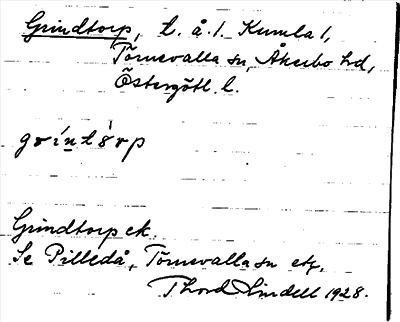 Grindtorp, t. å. 1 Kumla 1,
Törnevalla sn, Åkerbo hd,
Östergötl. l.
Grindtorp ek.
Se Pilledå, Törnevalla sn etc.
Thord Lindell 1928.